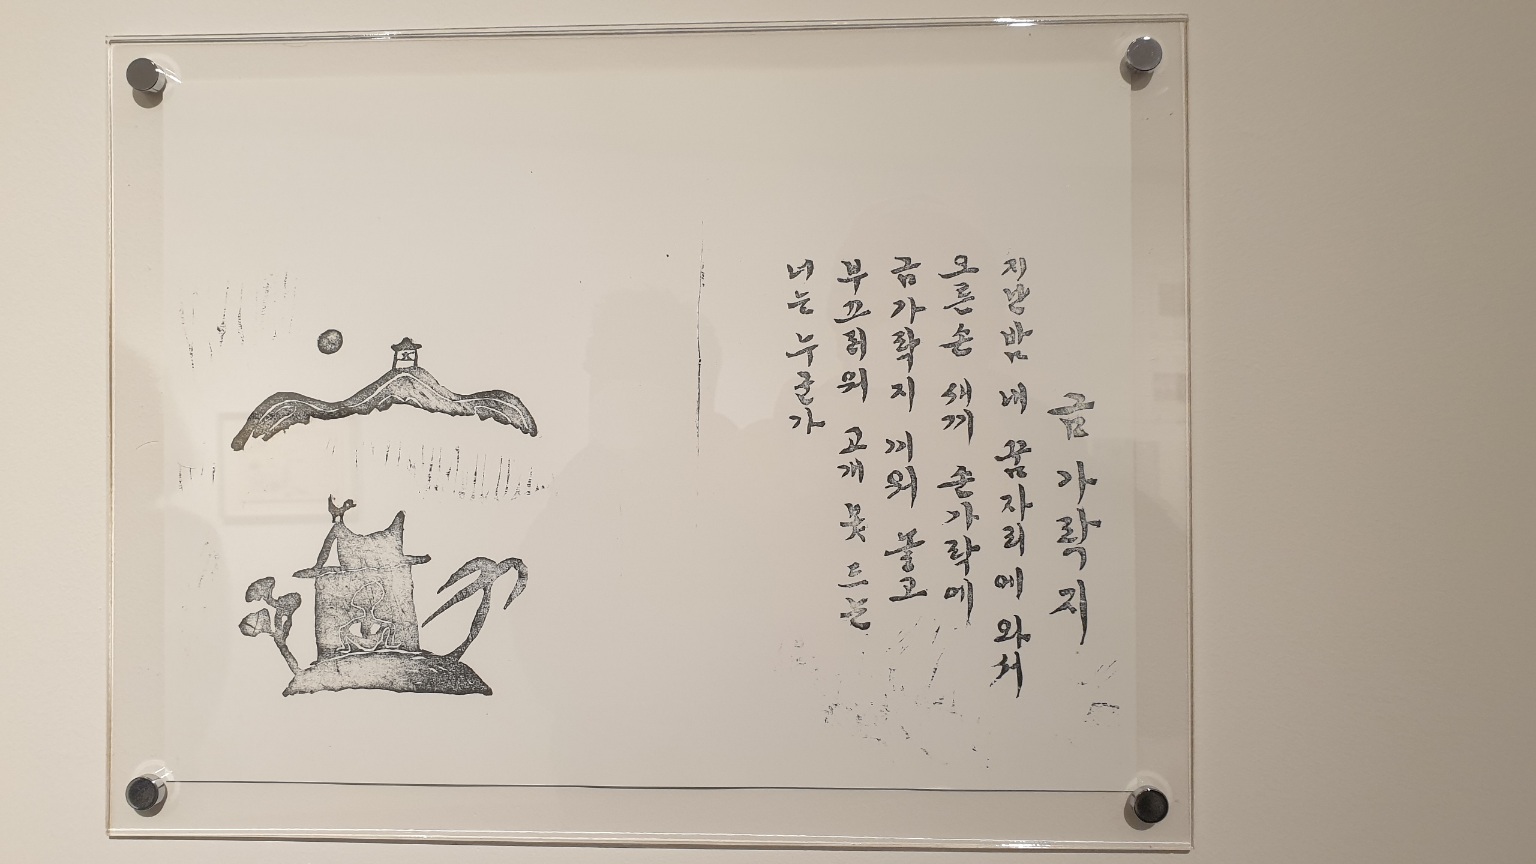 금가락지
지난밤 내 꿈자리에 와서
오른손 새끼 손가락에
금가락지 끼워 놓고
부끄러워 고개 못 드는
너는 누군가